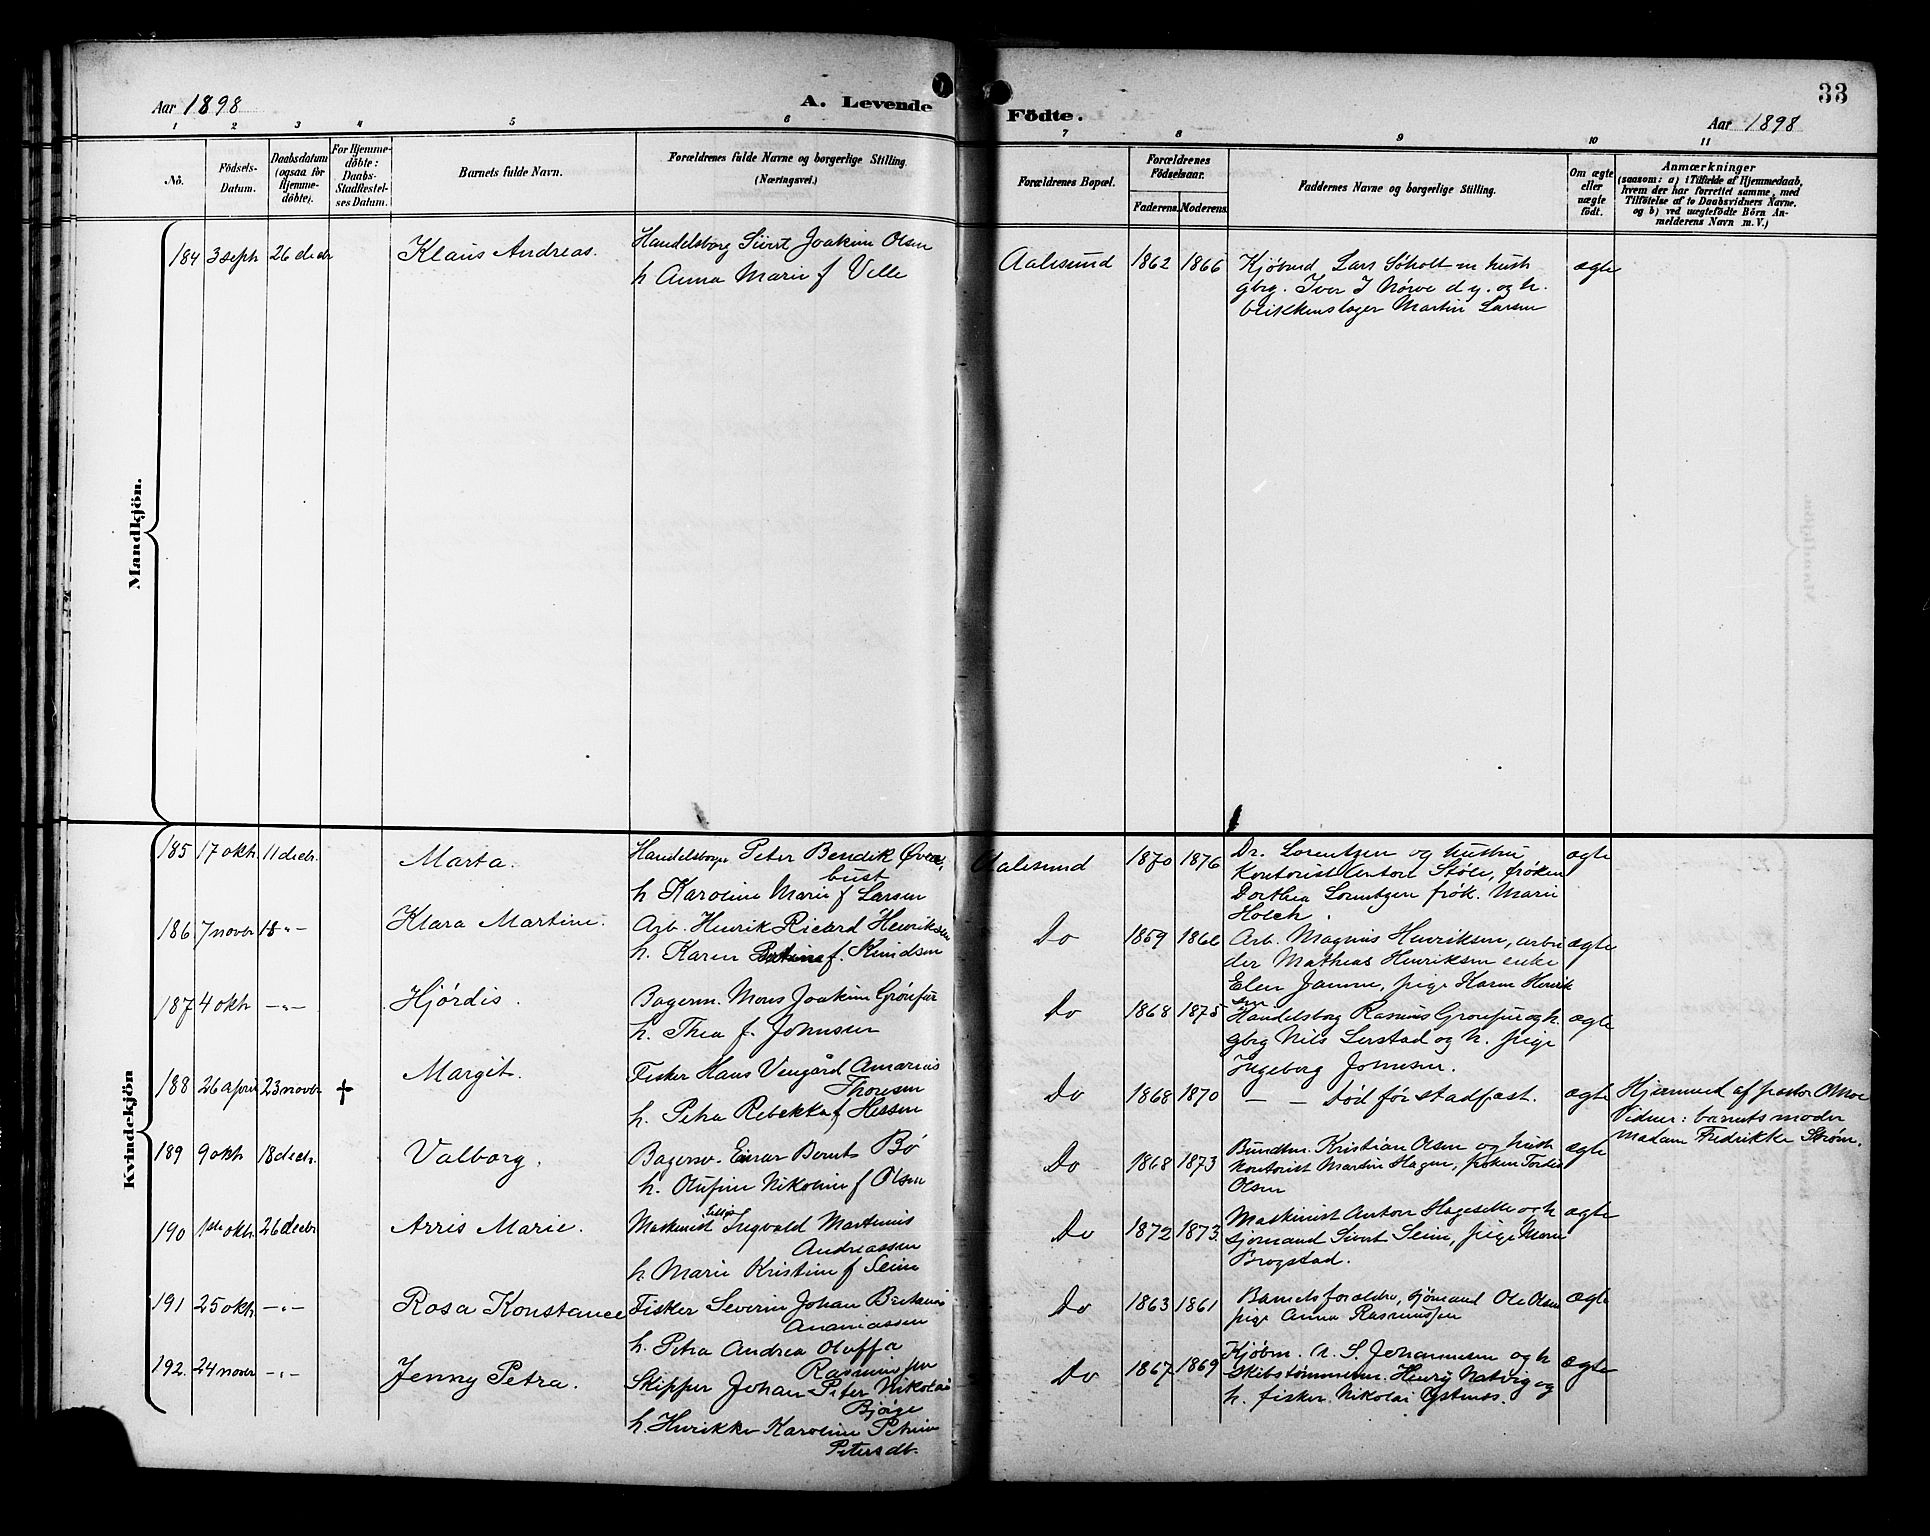 Aar 1898
A. Levende
Födte.
33
Aar 1898
1 2 3 4 5 6 7 8 9 10 11
No.
Födsels-
Datum.
Daabsdatum
(ogsaa for
Hjemme-
döbte).
For Hjemme-
döbte:
Daabs-
Stadfæstel-
ses Datum.
Barnets fulde Navn.
Forældrenes fulde Navne og borgerlige Stilling.
(Næringsvei.)
Forældrenes Bopæl.
Forældrenes
Födselsaar.
Faderens. Moderens.
Faddernes Navne og borgerlige Stilling.
Om ægte
eller
uægte
født.
Anmærkninger
(saasom: a) i Tilfælde af Hjemmedaab,
hvem der har forrettet samme, med
Tilföielse af to Daabsvidners Navne.
og b) ved uægtefödte Börn An-
melderens Navn m. V.)
Mandkjön.
184 3 septr 26 decbr Klaus Andreas.
Handelsborg Sivert Joakim Olsen
h Anna Marie f Velle
Aalesund 1862 1866
Kjøbmd Lars Søholt m hust
gbrg. Iver J Nørve d y. og h.
blikkenslager Martin Larsen
ægte
Kvindekjön
185 17 oktr 11 decbr. Marta.
Handelsborger Peter Bendik Øvre,
bust
h Karoline Marie f Larsen
Aalesund 1870 1876
Dr. Lorentzen og hustru,
Kontorist Anton Støle, frøken
Dorthea Lorentzen frøk. Marie
Holck.
ægte
186 7 novbr 18 -"- Klara Martine.
Arb. Henrik Ricard Henriksen
h. Karen f. Knudsen
Do 1859 1866
Arb. Magnus Henriksen, arbei
der Mathias Henriksen enke
Elen Janne, pige Karen Henrik
sen
ægte
187 4 oktr -"- Hjørdis.
Bagerm. Mons Joakim Grønfur
h. Thea f. Johnsen
Do 1868 1875
Handelsborg Rasmus Grønfur og h.
gbrg Nils Lerstad og h. pige
Ingeborg Johnsen.
ægte
188 26 april 23 novbr † Margit.
Fisker Hans Vengård Amarius
Thoresen
h. Petra Rebekka f Hessen
Do 1868 1870
— — Død før stadfæst.
ægte
Hjemmed af pastor
Vidner: barnets moder
Madam Fredrikke Strøm.
189 9 oktr 18 decbr. Valborg.
Bagersv. Einar Bernt Bø
h. Olufine Nikoline f Olsen
Do 1868 1873
Bundtm. Kristian Olsen og hust
Kontorist Martin Hagen, frøken Tordis
Olsen
ægte
190 1ste oktr. 26 decbr Arris Marie.
Maskinist Ingvald Martinus
Andreassen
h Marie Kristine f Seim
Do 1872 1873.
Maskinist Anton Hagesette og h
sjømand Sivert Seim, pige Marie
Brogstad.
ægte
191 25 oktr -"- Rosa Konstance
Fisker Severin Johan
Ananiassen
h. Petra Andrea Oluffa
Rasmussen
Do 1863 1861
Barnets forældre, sjømand Ole Olsen
pige Anna Rasmussen
ægte
192. 24 novbr -"- Jenny Petra.
Skipper Johan Peter Nikolai
Bjørge
h. Henrikke Karoline Petrine
Petersdt.
Do 1867 1869
Kjøbm. N. S. Johannesen og h
Skibstømmerm. Henry Natvig og
h. fisker Nikolai Østnes.
ægte